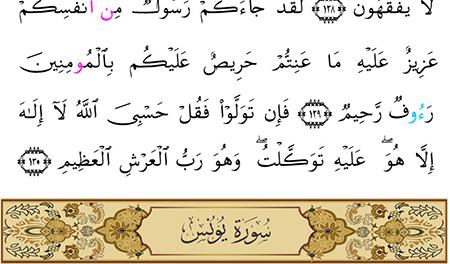 لَا يَفْقَهُونَ ١٢٨ لَقَدْ جَاءَكُمْ رَسُولٌ مِنْ أَنْفُسِكُمْ
عَزِيزٌ عَلَيْهِ مَا عَنِتُّمْ حَرِيصٌ عَلَيْكُم بِالْمُومِنِينَ
رَءُوفٌ رَّحِيمٌ ١٢٩ فَإِن تَوَلَّوْاْ فَقُلْ حَسْبِىَ اللَّهُ لَآ إِلَٰهَ
إِلَّا هُوَۖ عَلَيْهِ تَوَكَّلْتُۖ وَهُوَ رَبُّ الْعَرْشِ الْعَظِيمِ ١٣٠
سُورَةُ يُونُسَ